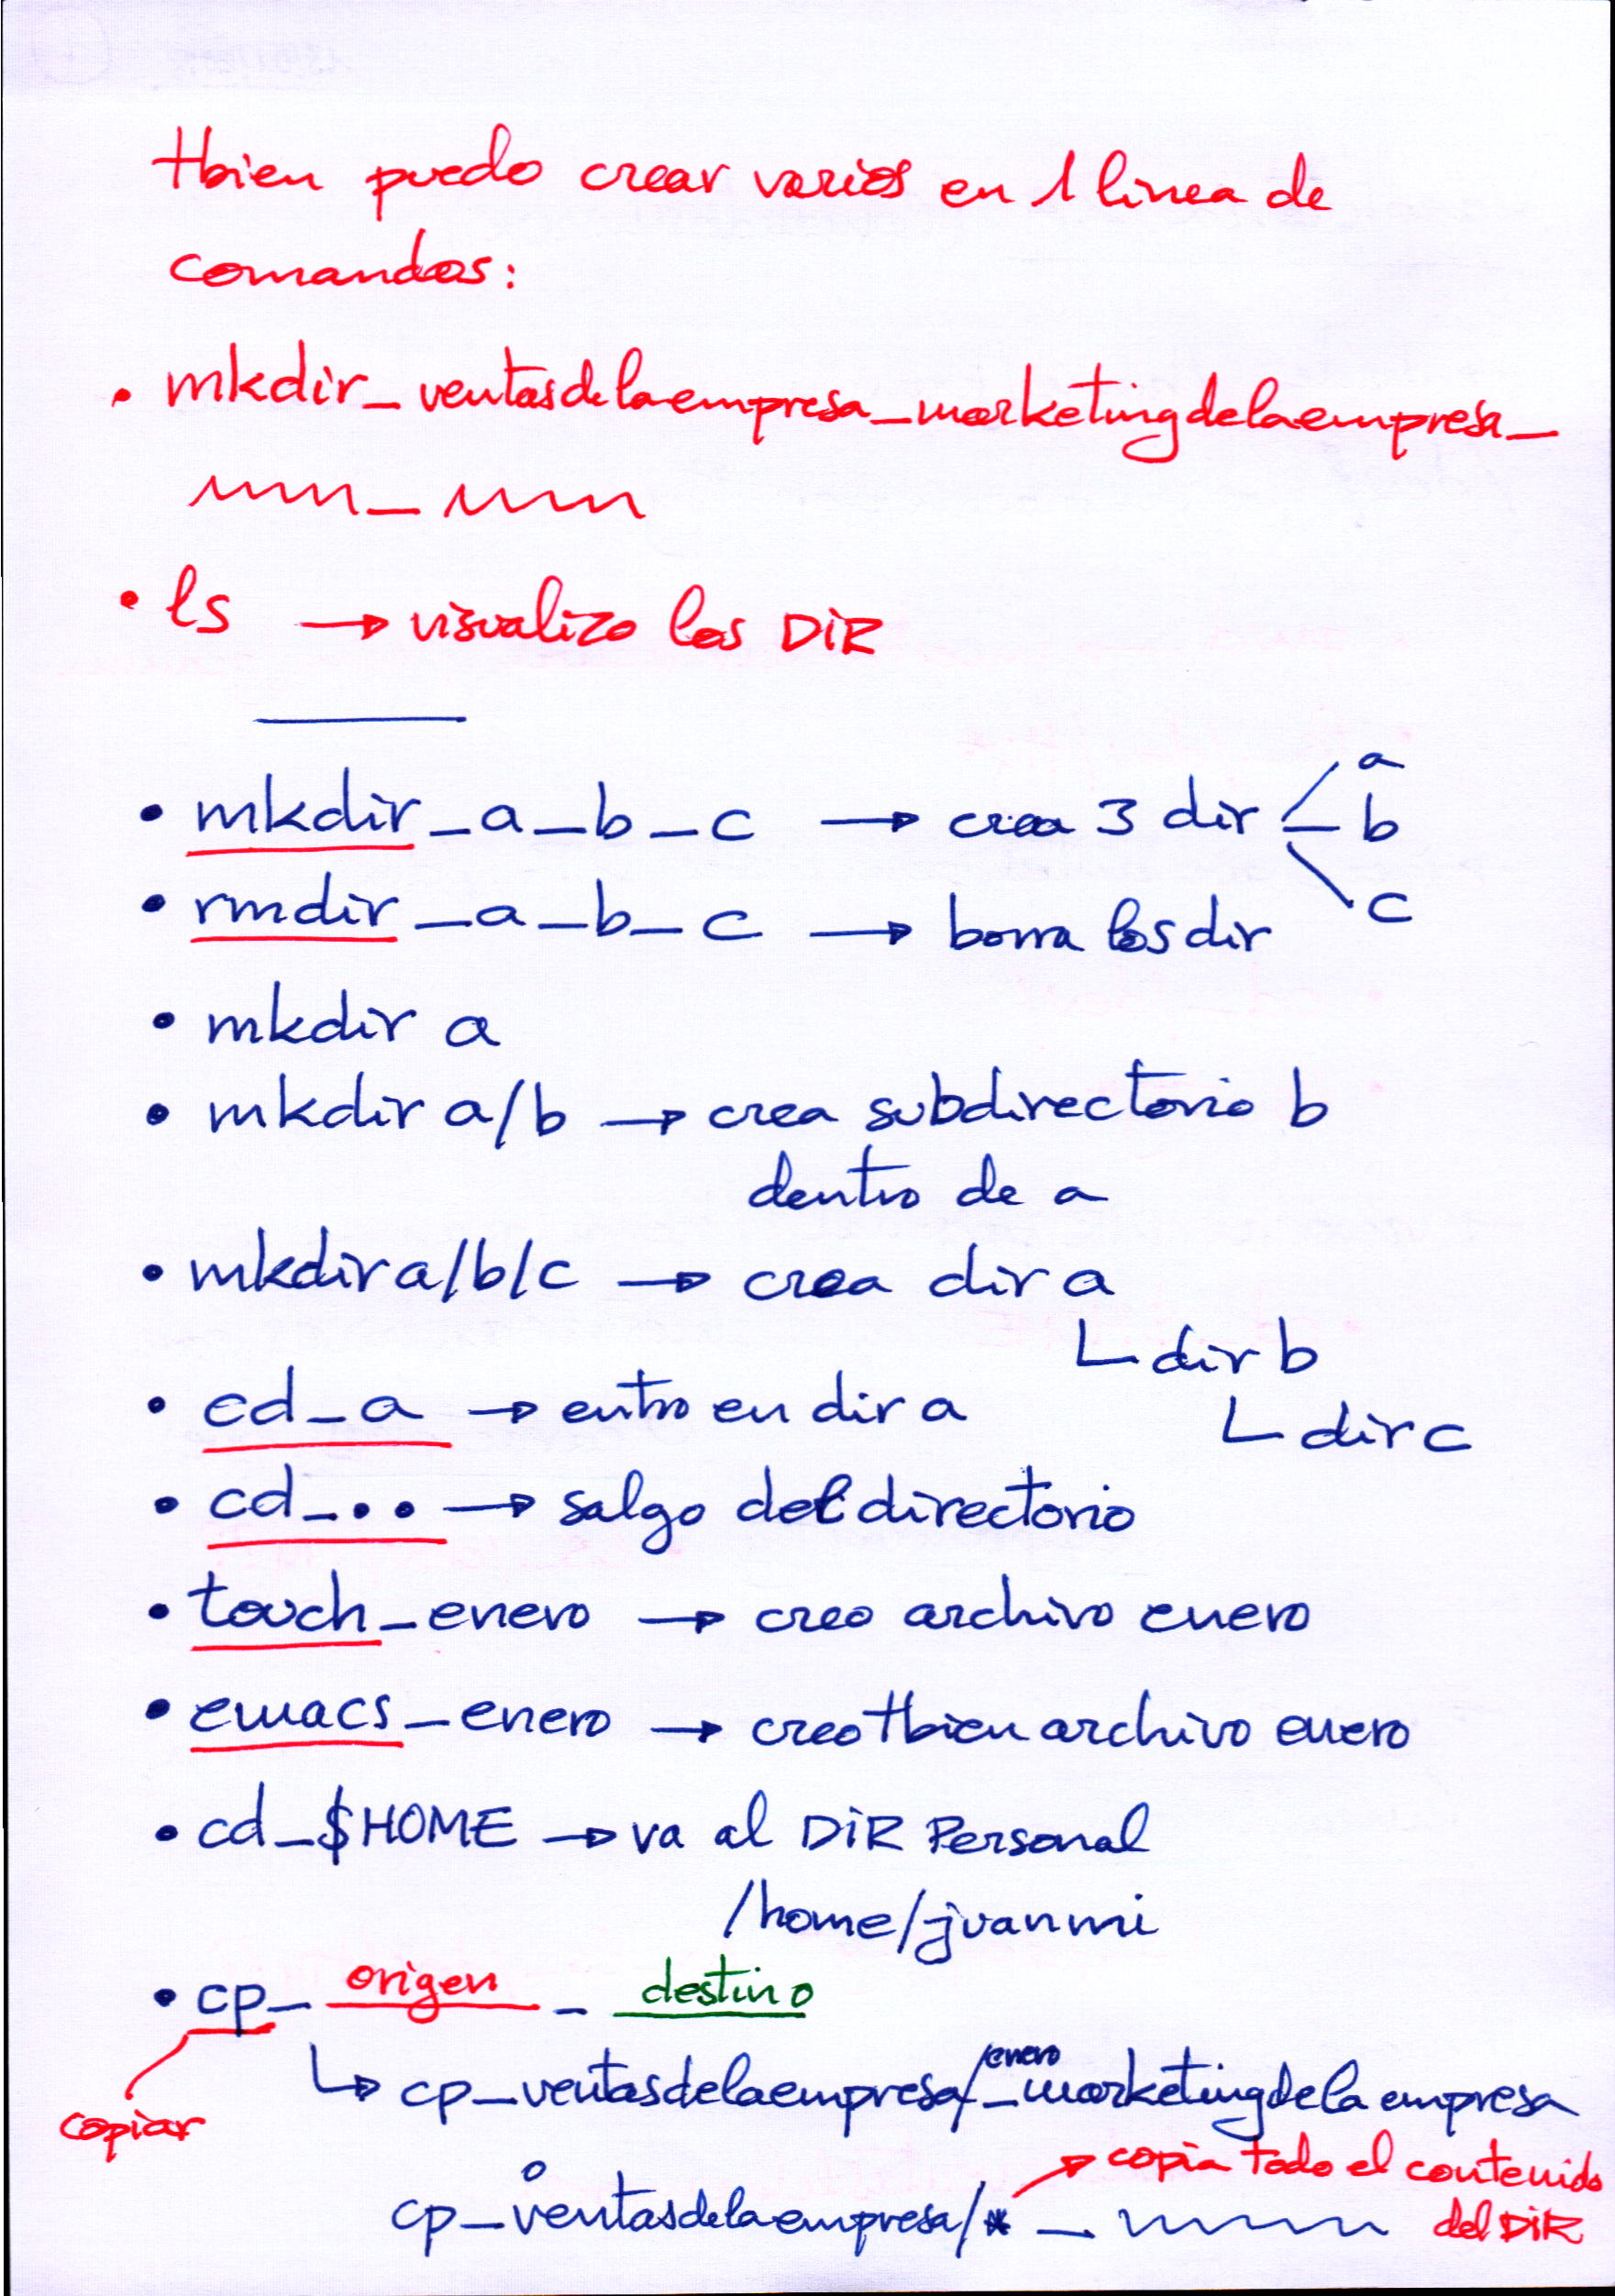 tbien puedo crear varios en 1 linea de
comandos:
• mkdir_ventasdelaempresa_marketingdelaempresa_
• ls → visualizo los DIR
• mkdir_a_b_c → crea 3 dir a b c
• rmdir_a_b_c → borra los dir
• mkdir a
• mkdir a/b → crea subdirectorio b
dentro de a
• mkdir a/b/c → crea dir a
dir b
• cd_a → entro en dir a
dir c
• cd_.. → salgo del directorio
• touch_enero → creo archivo enero
• emacs_enero → creo tbien archivo enero
• cd_$HOME → va al DIR Personal
/home/juanmi
• cp_ origen _ destino
copiar
cp_ventasdelaempresa/enero_marketingdelaempresa
o
cp_ventasdelaempresa/* _ → copia todo el contenido
del DIR